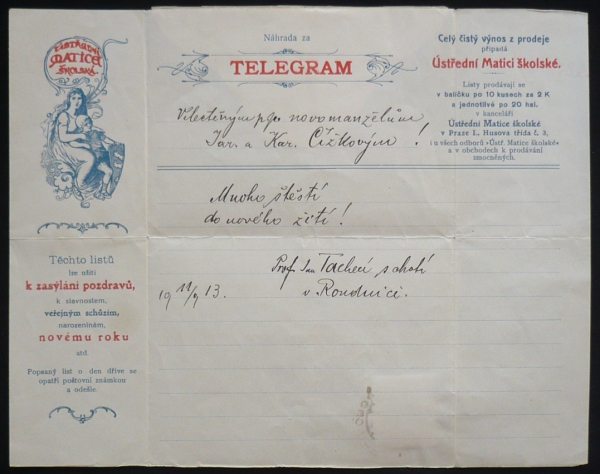 ÚSTŘEDNÍ
MATICE
ŠKOLSKÁ
Náhrada za
TELEGRAM
Celý čistý výnos z prodeje
připadá
Ústřední Matici školské.
Listy prodávají se
v balíčku po 10 kusech za 2 K
a jednotlivě po 20 hal.
v kanceláři
Ústřední Matice školské
v Praze I., Husova třída č. 3,
i u všech odborů »Ústř. Matice školské«
a v obchodech k prodávání
zmocněných.
Velectěným pp. novomanželům
Jar. a Kar. Čížkovým!
Mnoho štěstí
do nového žití!
Prof. Jan Tachecí s chotí
v Roudnici.
19 11/9 13.
Těchto listů
lze užíti
k zasýlání pozdravů,
k slavnostem,
veřejným schůzím,
narozeninám,
novému roku
atd
Popsaný list o den dříve se
opatří poštovní známkou
a odešle.